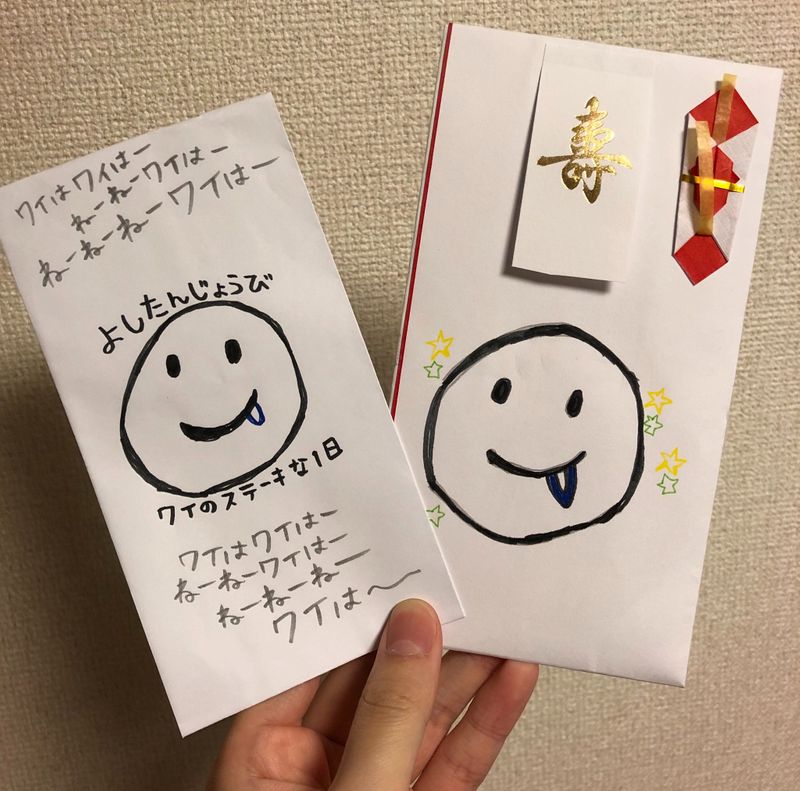 ワイはワイはー
ねーねーワイはー
ねーねーねーワイはー
よしたんじょうび
ワイのステーキな1日
ワイはワイはー
ねーねーワイはー
ねーねーねー
ワイは〜
寿